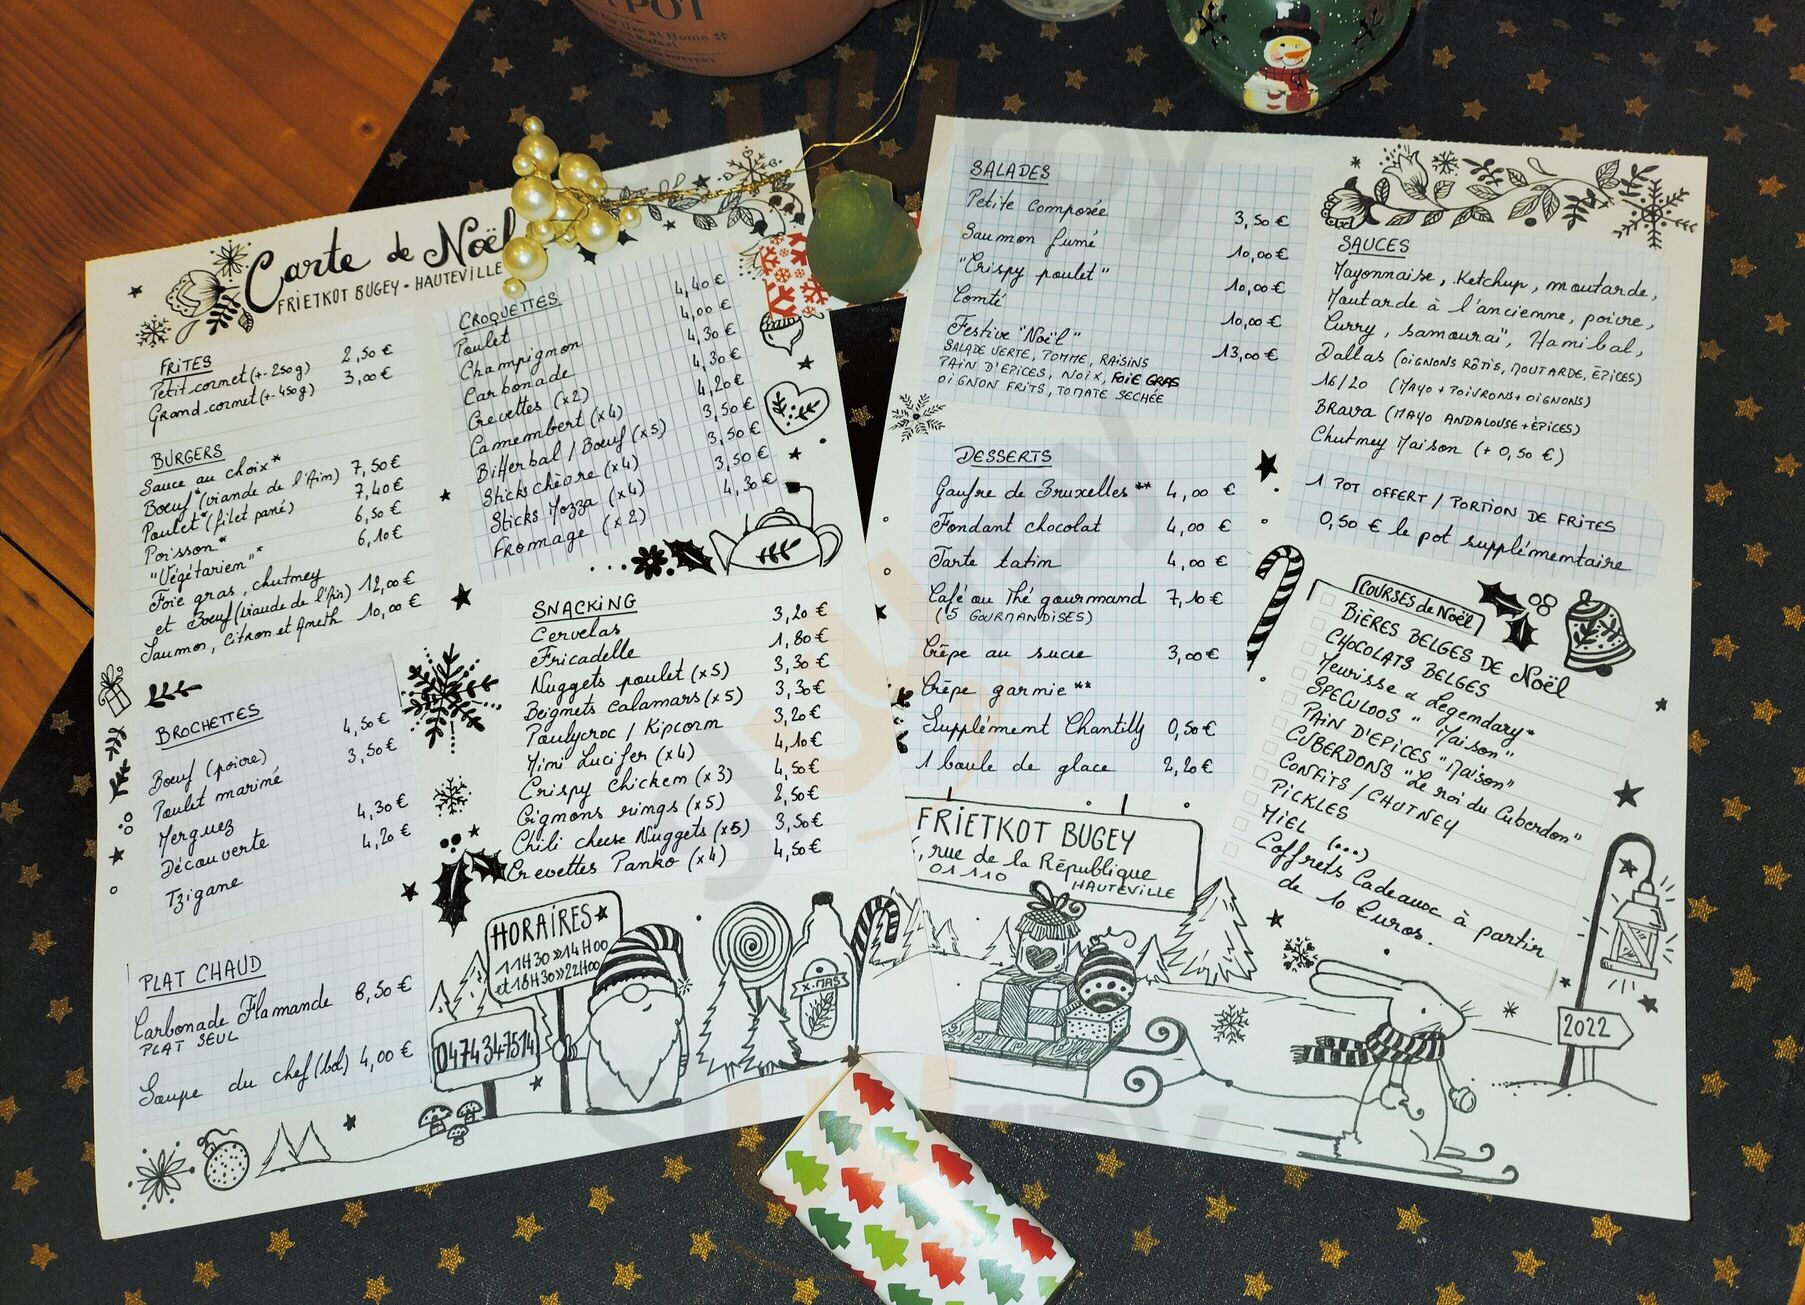 POT
Carte de Noël
FRIETKOT BUGEY - HAUTEVILLE
FRITES
Petit cornet (+- 250g) 2,50 €
Grand cornet (+- 450g) 3,00 €
BURGERS
Sauce au choix*
Boeuf* (viande de l'Ain) 7,50 €
Poulet* (filet pané) 7,40 €
Poisson* 6,50 €
"Végétarien"* 6,10 €
Foie gras, chutney
et Boeuf (viande de l'Ain) 12,00 €
Saumon, Citron et Aneth 10,00 €
BROCHETTES
Boeuf (poivre) 4,50 €
Poulet mariné 3,50 €
Merguez
Découverte 4,30 €
Tzigane 4,20 €
PLAT CHAUD
Carbonade Flamande 8,50 €
PLAT SEUL
Soupe du chef (bol) 4,00 €
CROQUETTES
Poulet 4,40 €
Champignon 4,00 €
Carbonade 4,30 €
Crevettes (x2) 4,30 €
Camembert (x4) 4,20 €
Bitterbal / Boeuf (x5) 3,50 €
Sticks chèvre (x4) 3,50 €
Sticks Mozza (x4) 3,50 €
Fromage (x2) 4,30 €
SNACKING
Cervelas 3,20 €
Fricadelle 1,80 €
Nuggets poulet (x5) 3,30 €
Beignets calamars (x5) 3,30 €
Poulycroc / Kipcorn 3,20 €
Mini Lucifer (x4) 4,10 €
Crispy chicken (x3) 4,50 €
Oignons rings (x5) 2,50 €
Chili cheese Nuggets (x5) 3,50 €
Crevettes Panko (x4) 4,50 €
HORAIRES
11H30 » 14H00
et 18H30 » 22H00
0474347514
X-MAS
SALADES
Petite composée 3,50 €
Saumon fumé 10,00 €
"Crispy poulet" 10,00 €
Comté 10,00 €
Festive "Noël" 13,00 €
SALADE VERTE, POMME, RAISINS
PAIN D'EPICES, NOIX, FOIE GRAS
OIGNON FRITS, TOMATE SECHÉE
DESSERTS
Gaufre de Bruxelles** 4,00 €
Fondant chocolat 4,00 €
Tarte tatin 4,00 €
Café ou Thé gourmand 7,10 €
(5 GOURMANDISES)
Crêpe au sucre 3,00 €
Crêpe garnie**
Supplément Chantilly 0,50 €
1 boule de glace 2,20 €
FRIETKOT BUGEY
, rue de la République
01110 HAUTEVILLE
SAUCES
Mayonnaise, Ketchup, moutarde,
Moutarde à l'ancienne, poivre,
Curry, samouraï, Hanibal,
Dallas (OIGNONS RÔTIS, MOUTARDE, ÉPICES)
16/20 (MAYO + POIVRONS + OIGNONS)
Brava (MAYO ANDALOUSE + ÉPICES)
Chutney Maison (+ 0,50 €)
1 POT OFFERT / PORTION DE FRITES
0,50 € le pot supplémentaire
COURSES de Noël
BIÈRES BELGES DE Noël
CHOCOLATS BELGES
Meurisse & Legendary*
SPECULOOS "Maison"
PAIN D'EPICES "Maison"
CUBERDONS "Le roi du Cuberdon"
CONFITS / CHUTNEY
PICKLES
MIEL (...)
Coffrets Cadeaux à partir
de 10 Euros.
2022